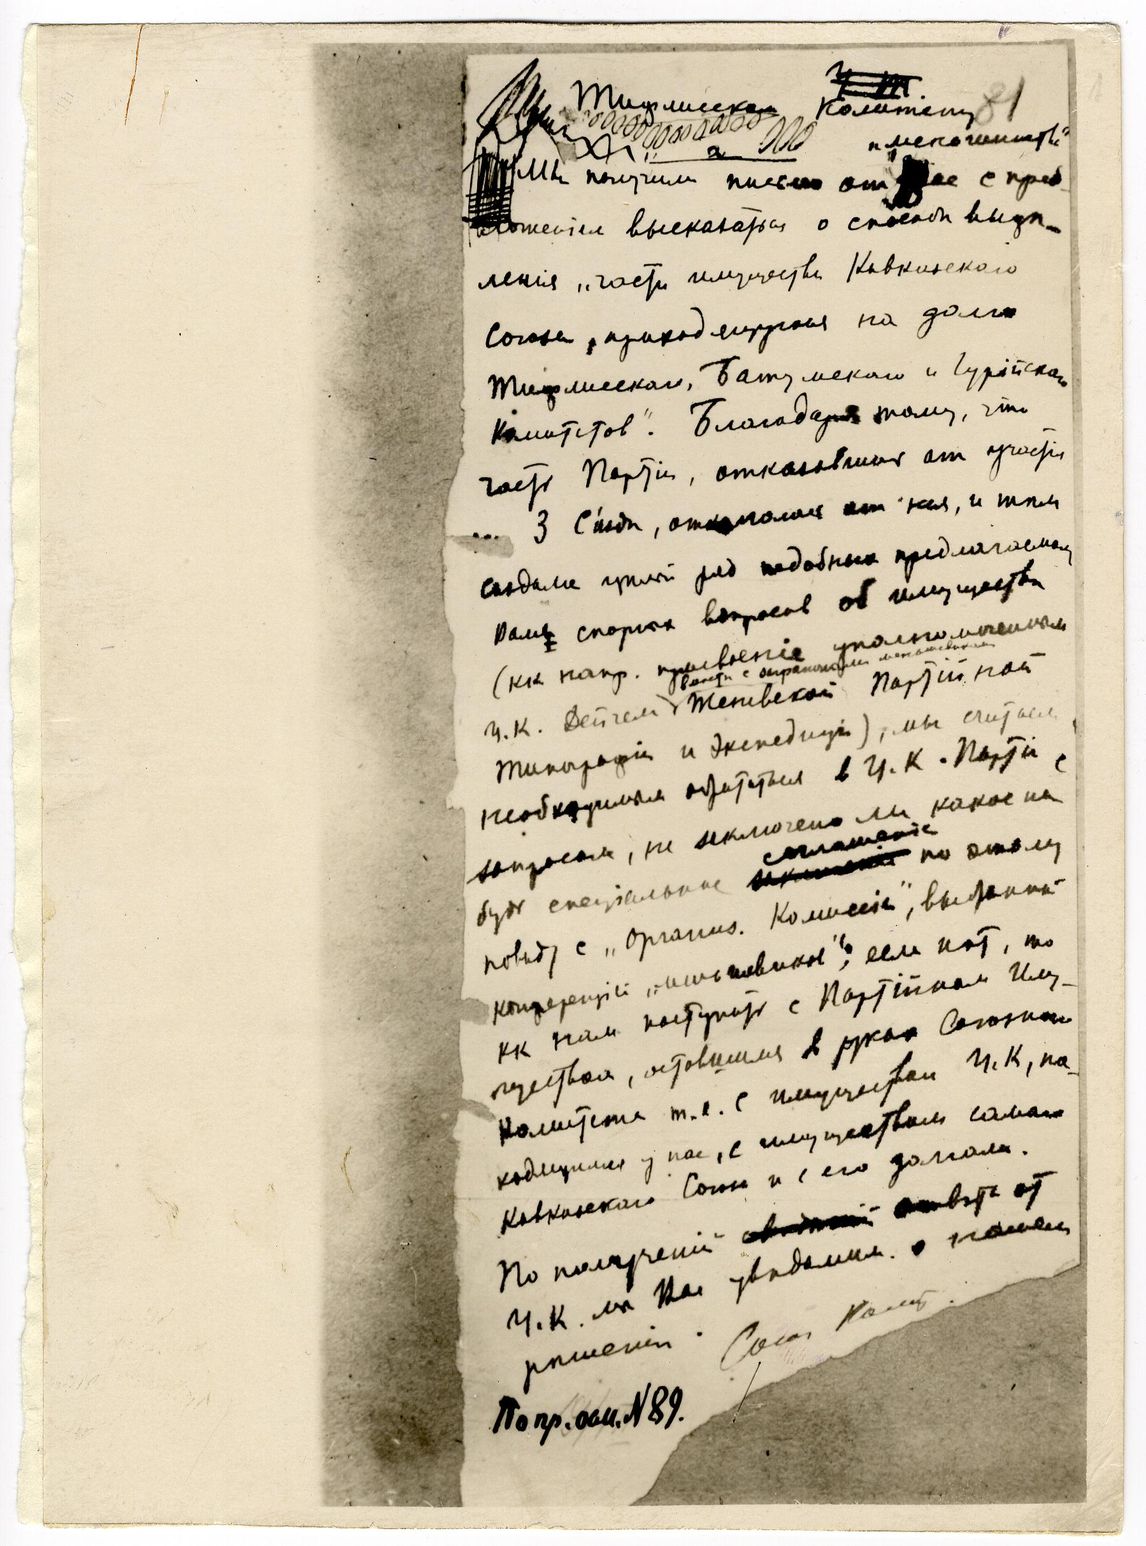 Тифлисском Комитету 81
„меньшинств"
Мы получили письмо от Вас с пред-
ложеніем высказаться о способѣ выдѣ-
ленія „части имущества Кавказскаго
Союза, приходящуюся на долю
Тифлисскаго, Батумскаго и Гурійскаго
Комитетов". Благодаря тому, что
часть Партіи, отказавшись от участія
... 3 Съѣзда, откололась от нея, и тѣм
создала цѣлый ряд подобных предлагаемому
Вами спорных вопросов об имуществѣ
(как напр. присвоеніе уполномоченным
вмѣстѣ с меньшевиками
Ц.К. Дейчем Женевской Партійной
Типографіи и Экспедиціи), мы считаем
необходимым обратиться в Ц.К. Партіи с
вопросом, не заключено ли какое ни
соглашеніе
будь спеціальное по этому
поводу с „Организ. Комиссіи", выбранной
конференціи если нѣт, то
как нам поступить с Партійным Иму-
ществом, оставшимся в руках Союзнаго
Комитета т.е. с имуществом Ц.К, на-
ходящимся у нас, с имуществом самого
Кавказскаго Союза и с его долгами.
По полученіи отвѣта от
Ц.К. мы Вас увѣдомим о нашем
рѣшеніи. Союз. Комит.
По пр. ом. N 89.